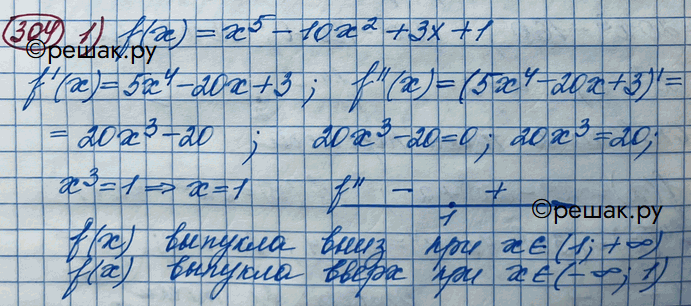 304 1) f(x) = x⁵ – 10x² + 3x + 1
©решак.ру
f'(x) = 5x⁴ – 20x + 3 ; f''(x) = (5x⁴ – 20x + 3)' =
= 20x³ – 20 ; 20x³ – 20 = 0 ; 20x³ = 20 ;
x³ = 1 ⇒ x = 1 f'' – +
1
©решак.ру
f(x) выпукла вниз при x ∈ (1; +∞)
f(x) выпукла вверх при x ∈ (–∞; 1)